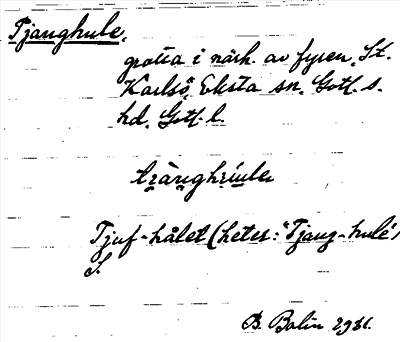 Tjanghule,
grotta i närh. av fyren, St.
Karlsö, Eksta sn. Gotl. s.
hd. Gotl. l.
Tjuf-hålet (heter: "Tjang-hule",
S.
B. Bolin 1931.